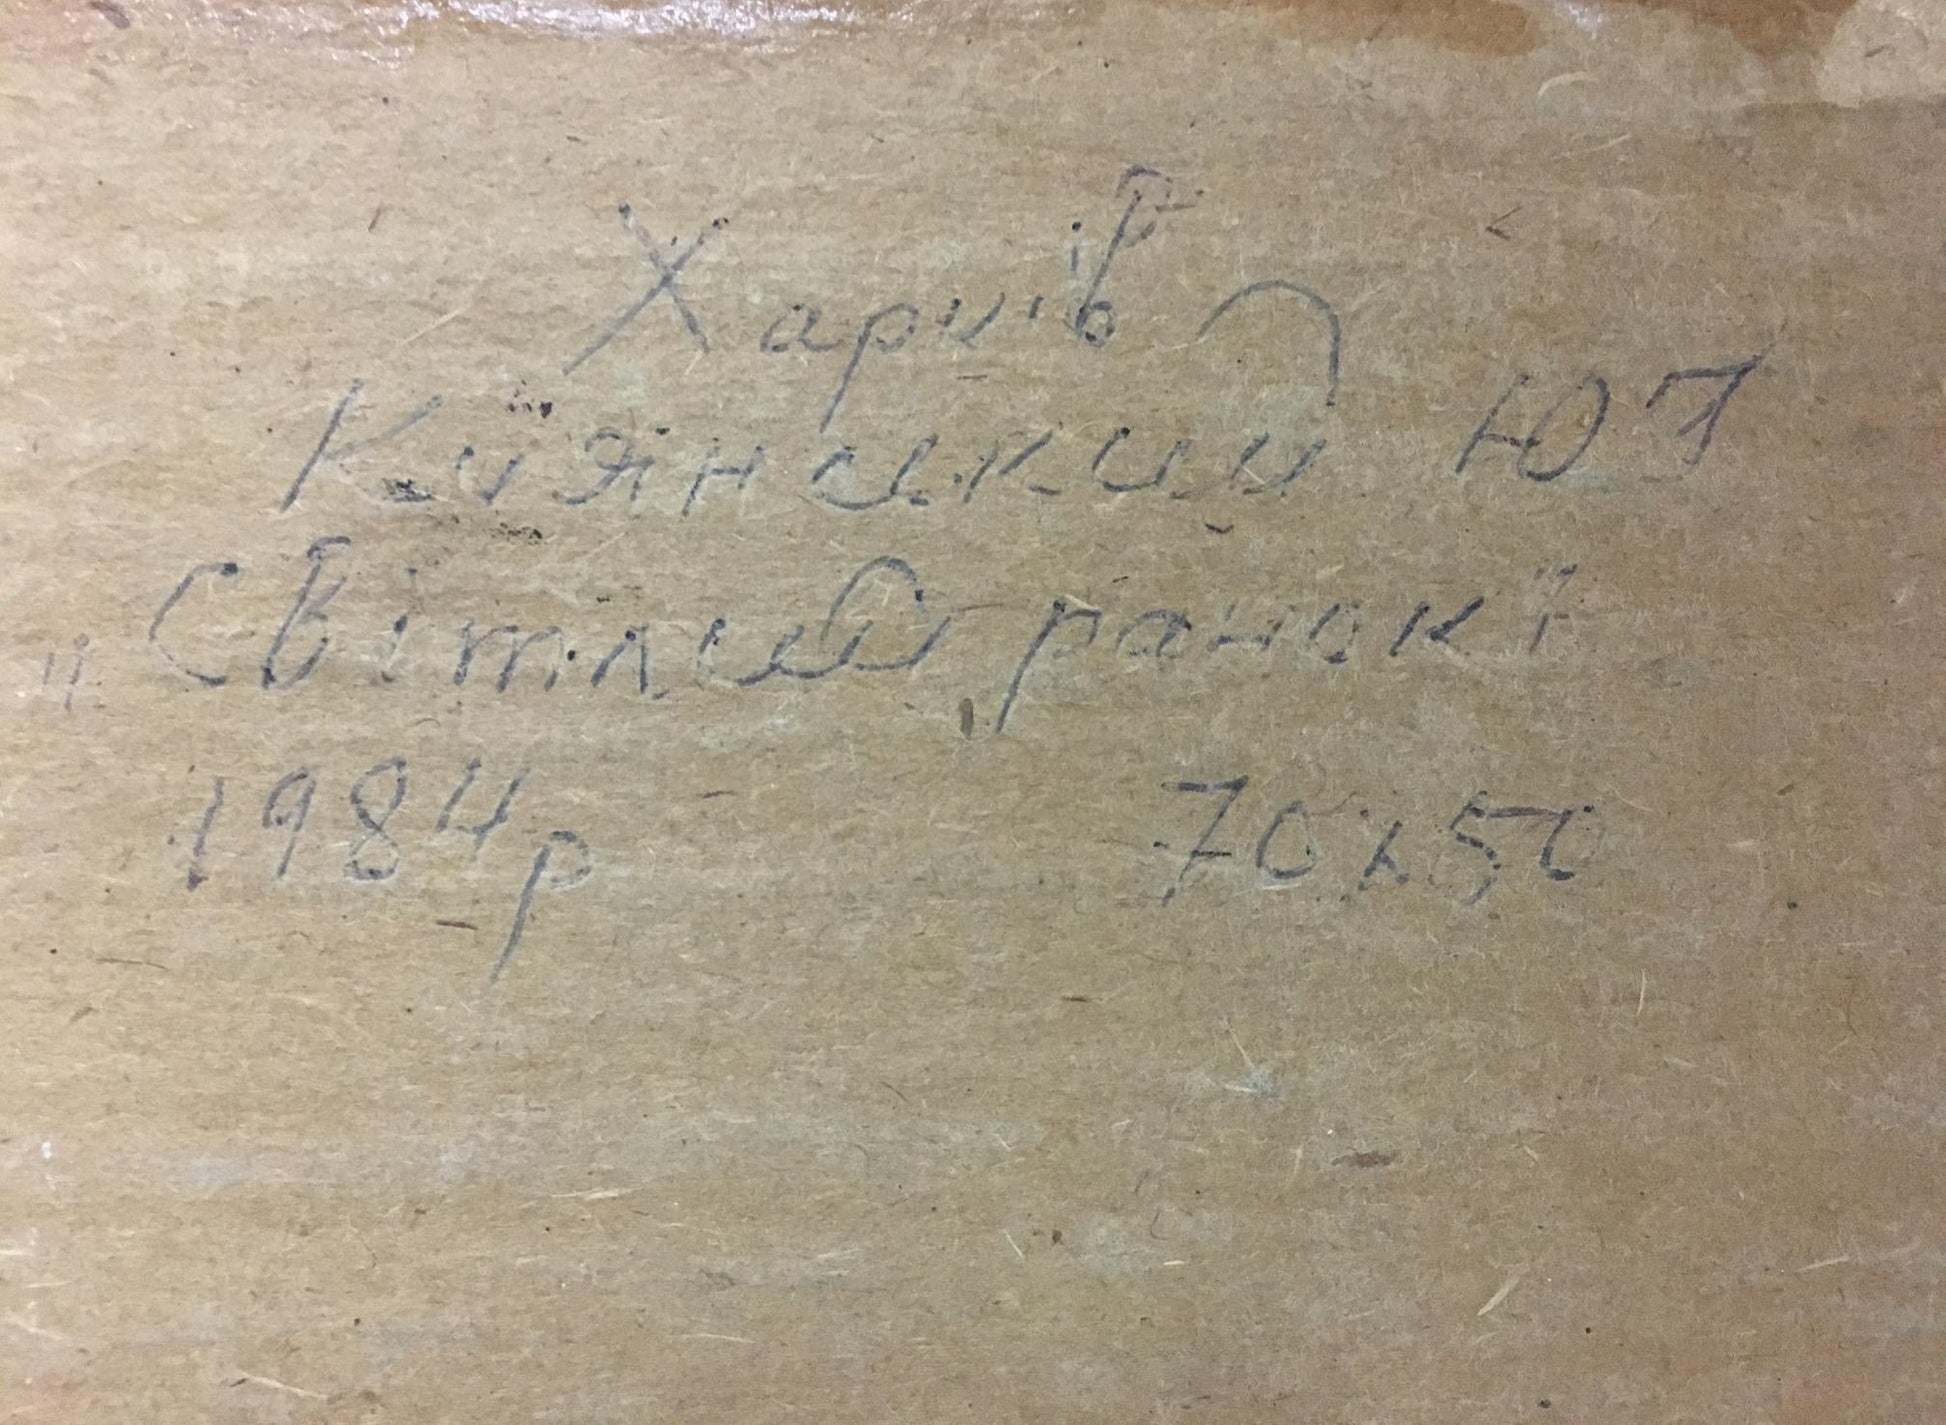 Харків
Киянський Ю П
"Світлий ранок"
1984р 70х50